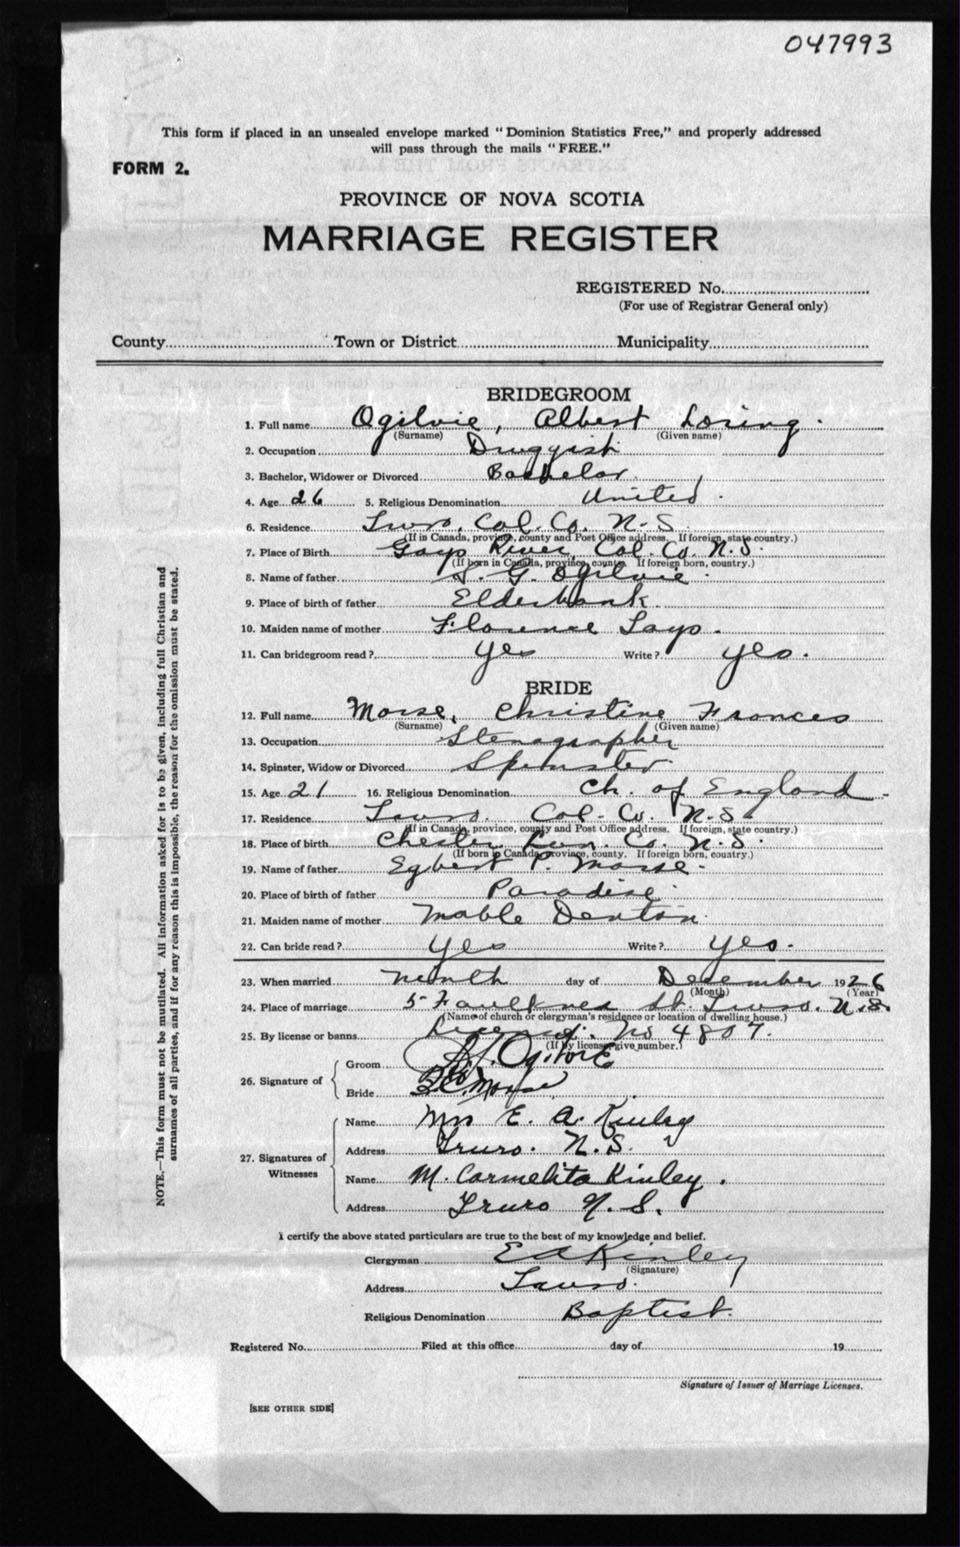 047993
This form if placed in an unsealed envelope marked "Dominion Statistics Free," and properly addressed
will pass through the mails "FREE."
FORM 2.
PROVINCE OF NOVA SCOTIA
MARRIAGE REGISTER
REGISTERED No.
(For use of Registrar General only)
County Town or District Municipality
BRIDEGROOM
1. Full name Ogilvie, Albert Loring
(Surname) (Given name)
2. Occupation Druggist
3. Bachelor, Widower or Divorced Bachelor
4. Age 26 5. Religious Denomination United
6. Residence Truro, Col. Co. N-S
(If in Canada, province, county and Post Office address. If foreign, state country.)
7. Place of Birth Gays River, Col. Co. N.S.
(If born in Canada, province, county. If foreign born, country.)
8. Name of father G. Ogilvie
9. Place of birth of father Elderbank
10. Maiden name of mother Florence Gays
11. Can bridegroom read? yes Write? yes.
BRIDE
12. Full name Morse, Christine Frances
(Surname) (Given name)
13. Occupation Stenographer
14. Spinster, Widow or Divorced Spinster
15. Age 21 16. Religious Denomination Ch. of England
17. Residence Truro. Col. Co. N.S.
(If in Canada, province, county and Post Office address. If foreign, state country.)
18. Place of birth Chester Lun. Co. N.S.
(If born in Canada, province, county. If foreign born, country.)
19. Name of father Egbert P. Morse
20. Place of birth of father Paradise
21. Maiden name of mother Mable Denton
22. Can bride read? yes Write? yes.
23. When married ninth day of December 1926
(Month) (Year)
24. Place of marriage 5 Faulkner St. Truro. N.S.
(Name of church or clergyman's residence or location of dwelling house.)
25. By license or banns License. No 4807.
(If by license give number.)
26. Signature of Groom Ogilvie
Bride Morse
27. Signatures of Witnesses
Name Mrs E. A. Kinley
Address Truro. N.S.
Name M. Carmelita Kinley.
Address Truro N.S.
I certify the above stated particulars are true to the best of my knowledge and belief.
Clergyman E A Kinley
(Signature)
Address Truro.
Religious Denomination Baptist.
Registered No. Filed at this office day of 19
Signature of Issuer of Marriage Licenses.
[SEE OTHER SIDE]
NOTE.—This form must not be mutilated. All information asked for is to be given, including full Christian and
surnames of all parties, and if for any reason this is impossible, the reason for the omission must be stated.